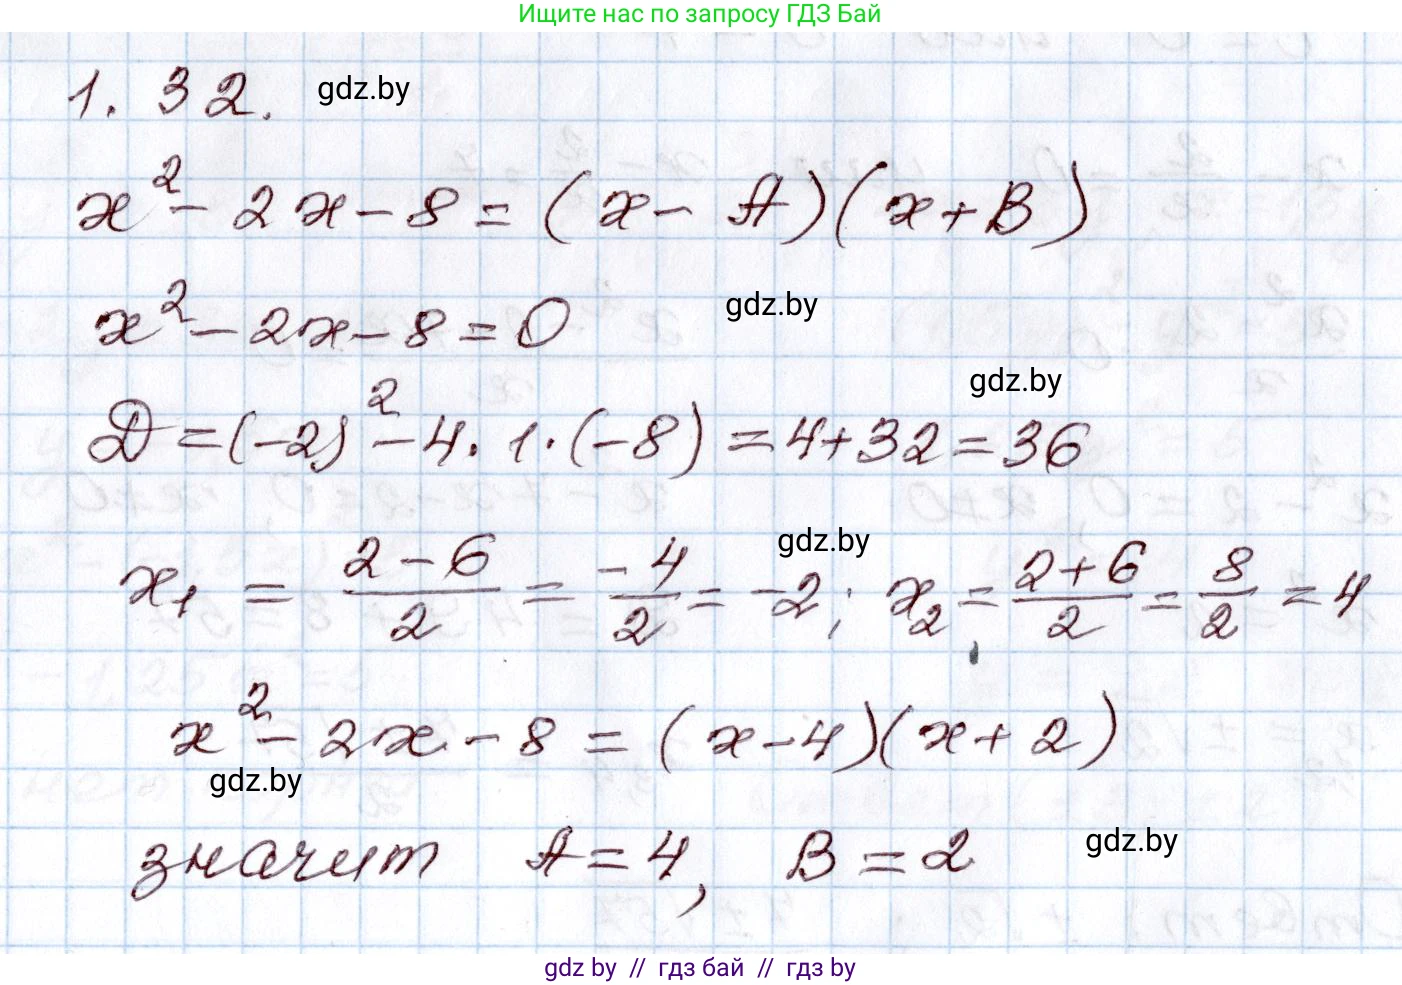 Ищите нас по запросу ГДЗ Бай
1.32. gdz.by
x² - 2x - 8 = (x - A)(x + B)
x² - 2x - 8 = 0 gdz.by
gdz.by
D = (-2)² - 4 · 1 · (-8) = 4 + 32 = 36
gdz.by
x₁ = (2 - 6)/2 = -4/2 = -2; x₂ = (2 + 6)/2 = 8/2 = 4
x² - 2x - 8 = (x - 4)(x + 2)
gdz.by
значит A = 4, B = 2 gdz.by
gdz by // гдз бай // гдз by